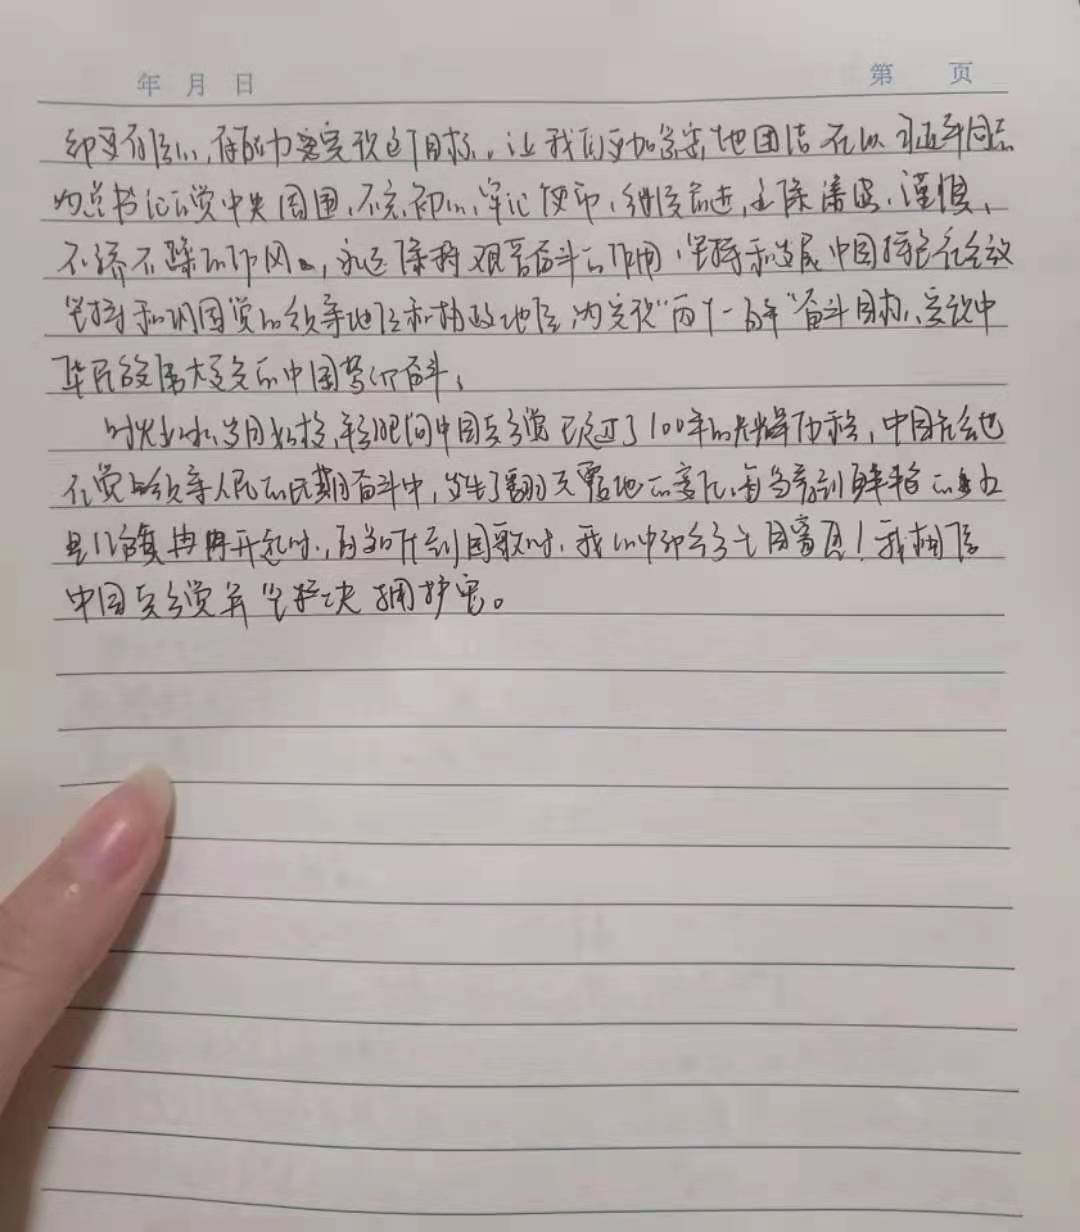 年 月 日
第 页
都要有信心,有能力实现这个目标。让我们更加紧密地团结在以习近平同志
为总书记的党中央周围,不忘初心,牢记使命,继续前进,谦虚、谨慎、
不骄不躁的作风,永远保持艰苦奋斗的作用,坚持和发展中国特色社会主义
坚持和巩固党的领导地位和执政地位,为实现"两个一百年"奋斗目标、实现中
华民族伟大复兴的中国梦而奋斗。
时光如水,岁月如梭,转眼间中国共产党已走过了100年的光辉历程,中国社会也
在党的领导人民的长期奋斗中,发生了翻天覆地的变化,每当看到鲜艳的五
星红旗冉冉升起时,每当听到国歌时,我心中都会!我相信
中国共产党并坚决拥护党。